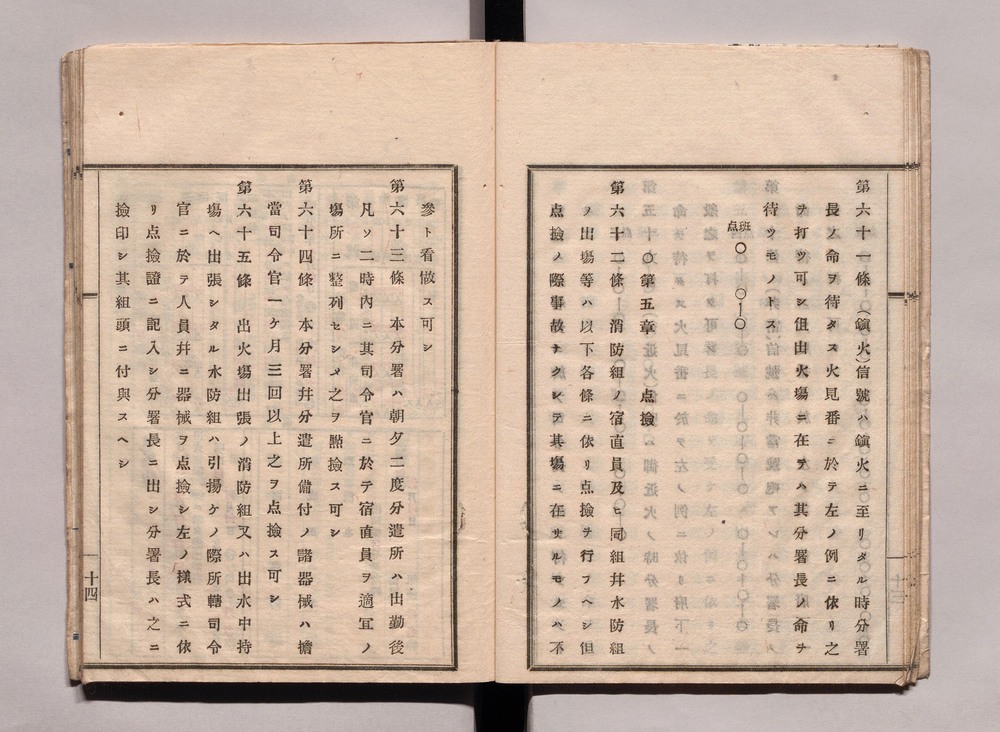 第六十一條(鎭火)信號ハ鎭火ニ至リタル時分署
長ノ命ヲ待タス火見番ニ於テ左ノ例ニ依リ之
ヲ打ツ可シ伹由火塲ニ在テハ其分署長ノ命ヲ
待ツモノトス
班点 〇 〇―〇
〇第五章 点撿
第六十二條 消防組ノ宿直員及ヒ同組幷水防組
ノ出塲等ハ以下各條ニ依リ点撿ヲ行フヘシ但
点撿ノ際事故ナクシテ其塲ニ在サルモノハ不
參ト看做ス可シ
第六十三條 本分署ハ朝夕二度分遣所ハ出勤後
凡ソ二時內ニ其司令官ニ於テ宿直員ヲ適冝ノ
塲所ニ整列セシメ之ヲ㸃撿ス可シ
第六十四條 本分署幷分遣所備付ノ諸器械ハ擔
當司令官一ケ月三回以上之ヲ点撿ス可シ
第六十五條 出火塲出張ノ消防組又ハ出水中持
塲ヘ出張シタル水防組ハ引揚ケノ際所轄司令
官ニ於テ人員幷ニ器械ヲ点撿シ左ノ樣式ニ依
リ点撿證ニ記入シ分署長ニ出シ分署長ハ之ニ
撿印シ其組頭ニ付與スヘシ
十四